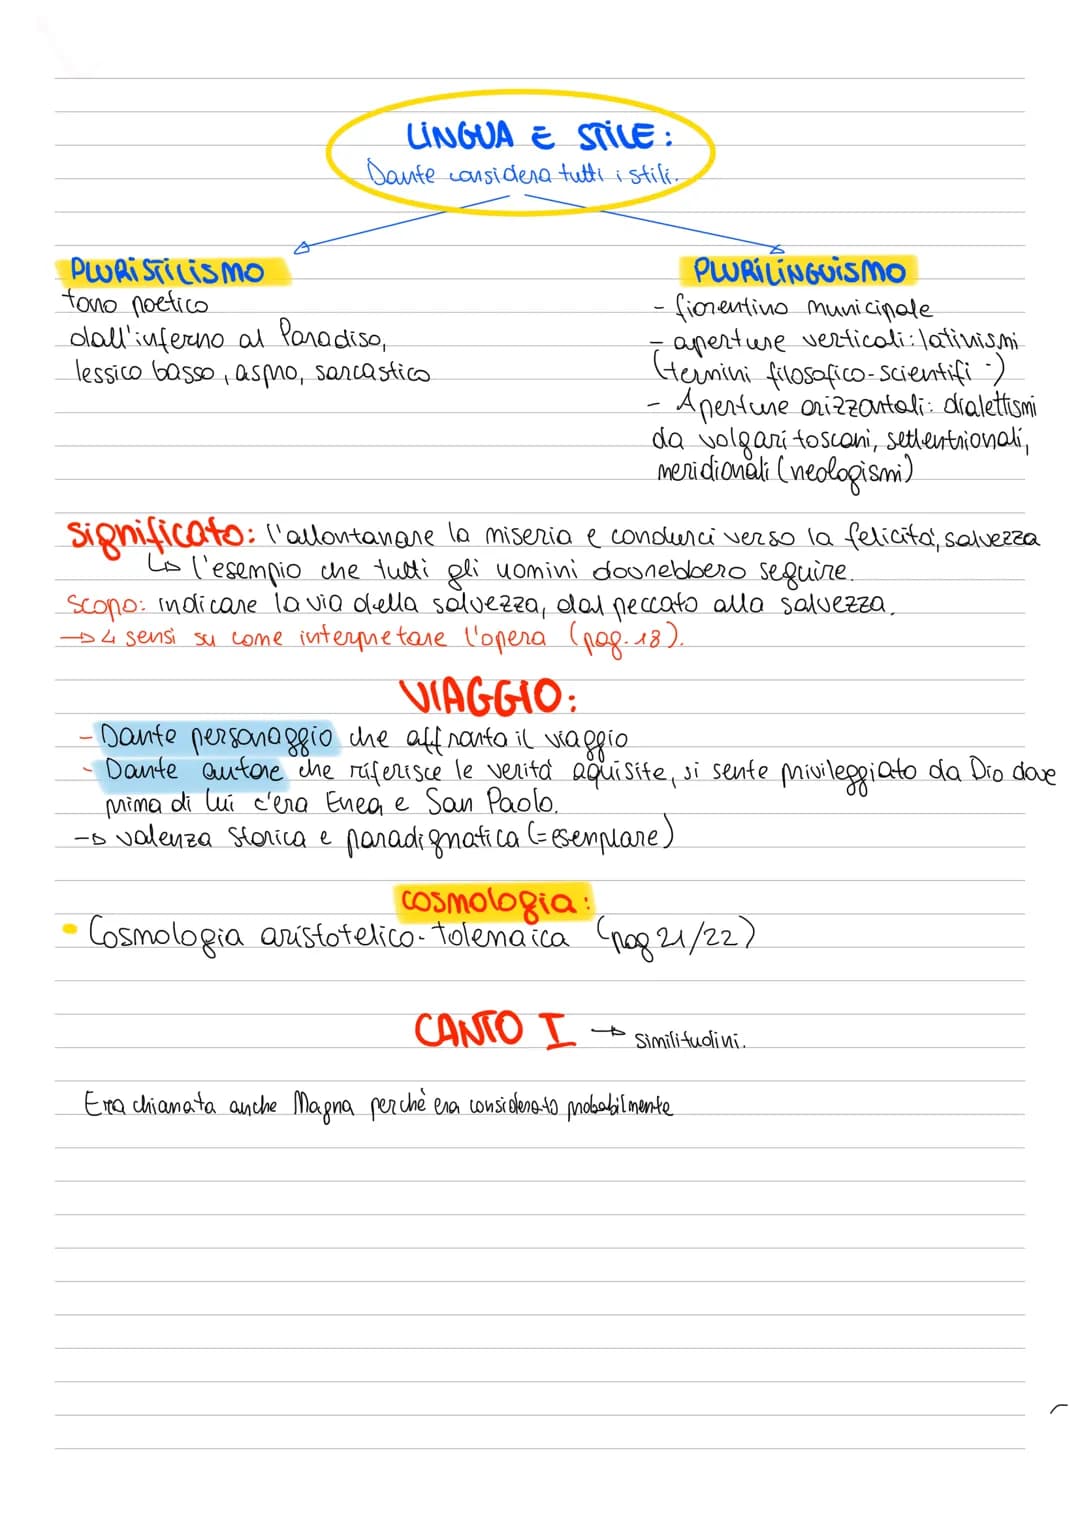 LINGUA E STILE:
Dante considera tutti i stili.
PLURISTILISMO
tono poetico
dall'inferno al Paradiso,
lessico basso, aspro, sarcastico
PLURILINGUISMO
- fiorentino municipale
- aperture verticali: latinismi
(termini filosofico-scientifi -)
- Aperture orizzontali: dialettismi
da volgari toscani, settentrionali,
meridionali (neologismi)
Significato: l'allontanare la miseria e condurci verso la felicità, salvezza
↳ l'esempio che tutti gli uomini dovrebbero seguire.
Scopo: indicare la via della salvezza, dal peccato alla salvezza.
→ 4 sensi su come interpretare l'opera (pag. 18).
VIAGGIO:
- Dante personaggio che affronta il viaggio
- Dante autore che riferisce le verità aquisite, si sente privileggiato da Dio dove
prima di lui c'era Enea e San Paolo.
→ valenza storica e paradignatica (= esemplare)
cosmologia:
• Cosmologia aristotelico-tolemaica (pag 21/22)
CANTO I → similitudini.
Era chiamata anche Magna perchè era considerato probabilmente